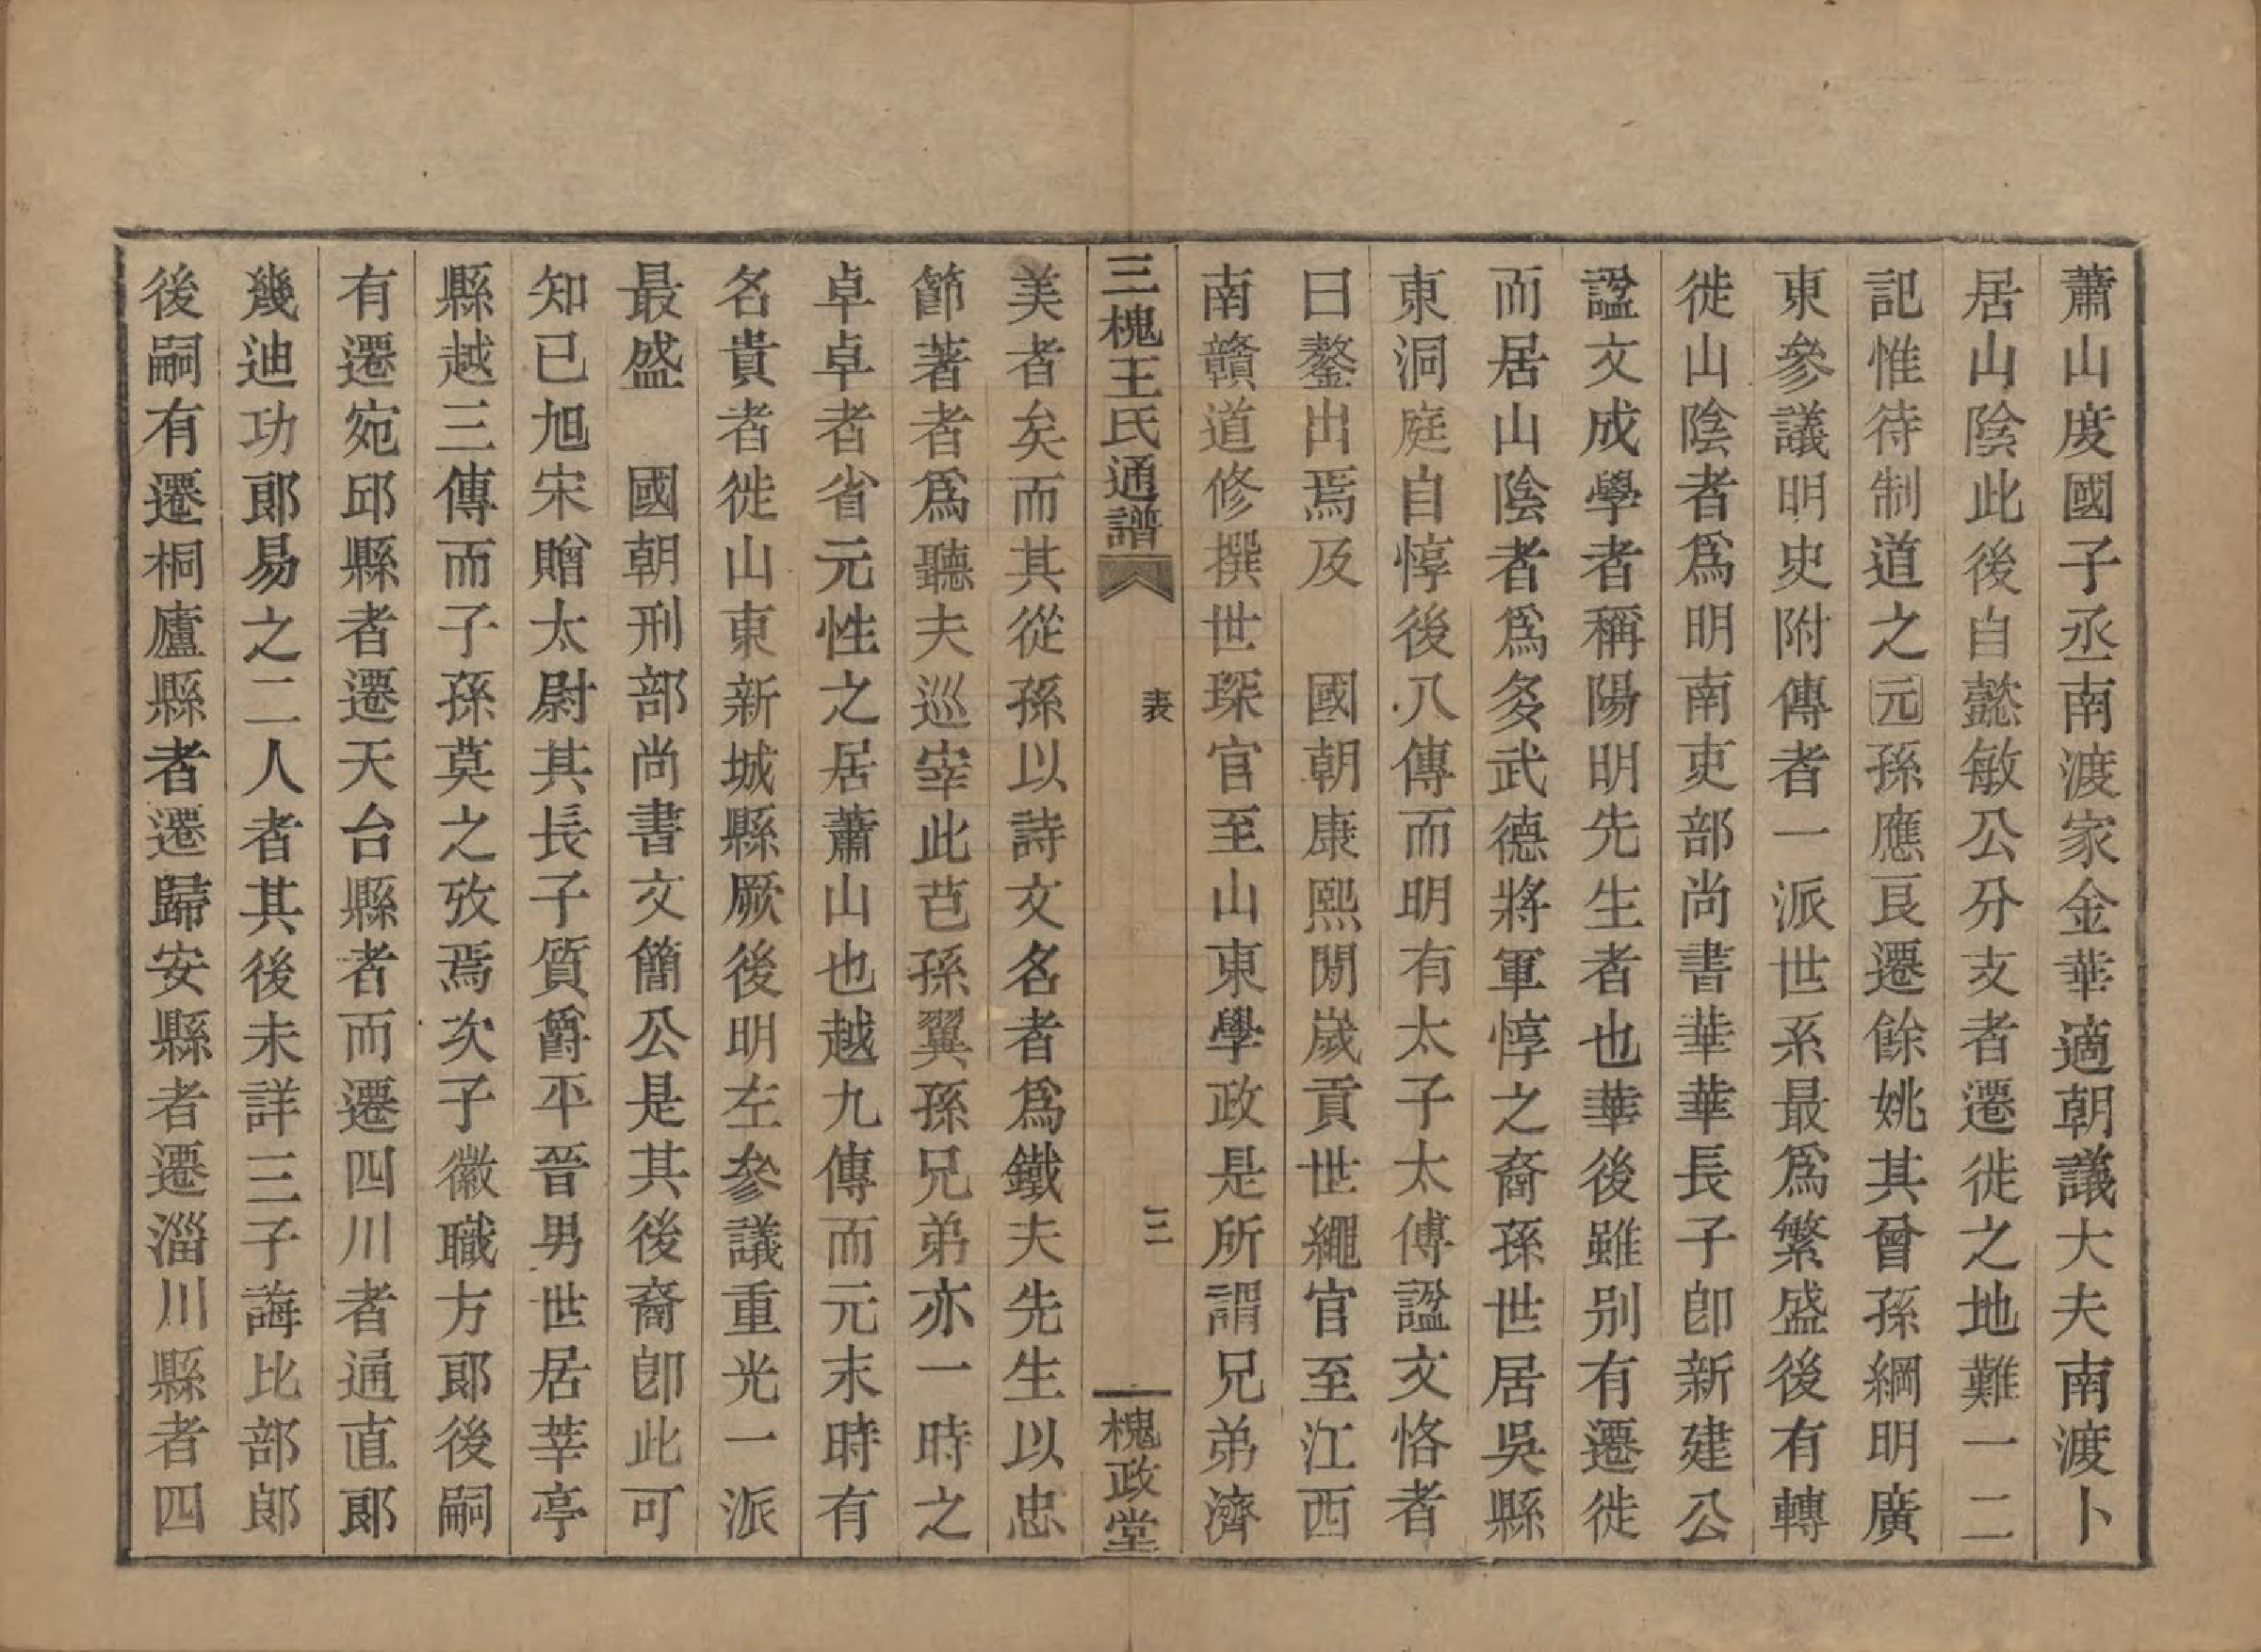 蕭山度國子丞南渡家金華適朝議大夫南渡卜
居山陰此後自懿敏公分支者遷徙之地難一二
記惟待制道之元孫應良遷餘姚其曾孫綱明廣
東參議明史附傳者一派世系最爲繁盛後有轉
徙山陰者爲明南吏部尚書華華長子卽新建公
諡文成學者稱陽明先生者也華後雖別有遷徙
而居山陰者爲多武德將軍惇之裔孫世居吳縣
東洞庭自惇後八傳而明有太子太傅諡文恪者
曰鏊出焉及　國朝康熙閒嵗貢世繩官至江西
南贛道修撰世琛官至山東學政是所謂兄弟濟
三槐王氏通譜
表
三
槐政堂
美者矣而其從孫以詩文名者爲鐵夫先生以忠
節著者爲聽夫巡宰此芑孫翼孫兄弟亦一時之
卓卓者省元性之居蕭山也越九傳而元末時有
名貴者徙山東新城縣厥後明左參議重光一派
最盛　國朝刑部尚書文簡公是其後裔卽此可
知已旭宋贈太尉其長子質爵平晉男世居莘亭
縣越三傳而子孫莫之攷焉次子徽職方郞後嗣
有遷宛邱縣者遷天台縣者而遷四川者通直郞
幾迪功郞易之二人者其後未詳三子誨比部郞
後嗣有遷桐廬縣者遷歸安縣者遷淄川縣者四